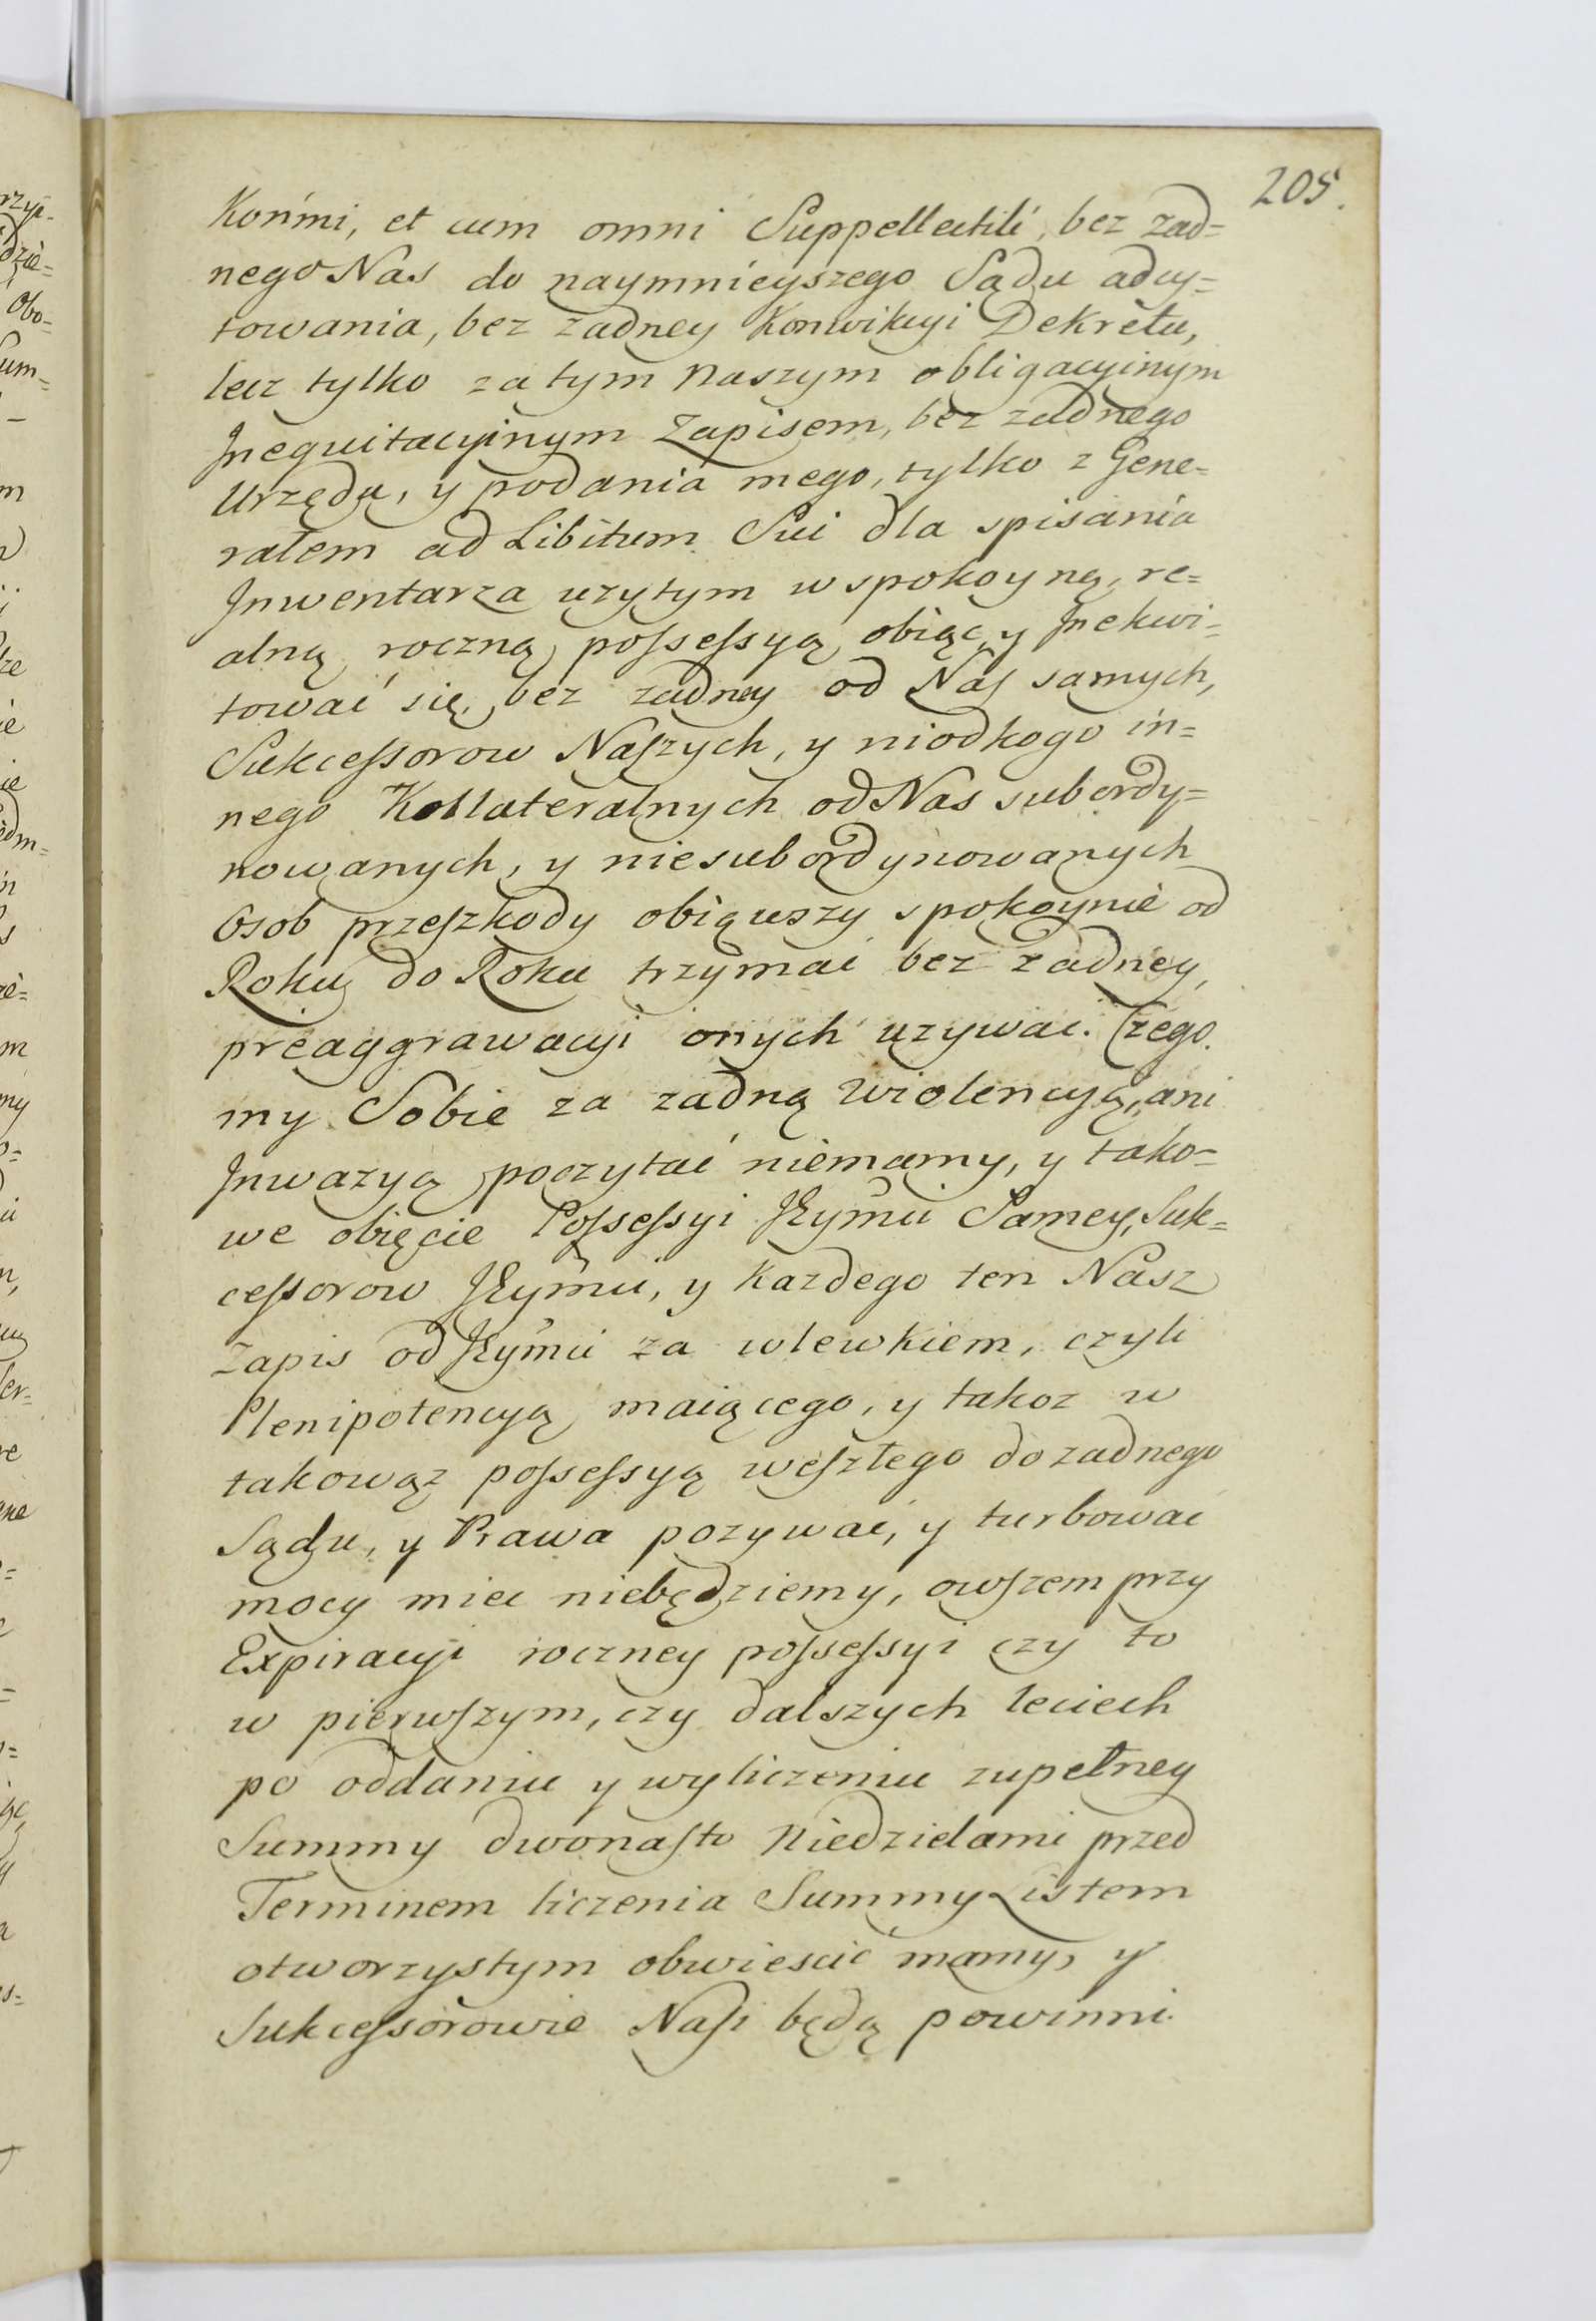 205.
Końmi, et cum omni Suppellectili, bez zad=
nego Nas do naymnieyszego Sądu adcy=
towania, bez zadney Konwikcyi Dekretu,
lecz tylko za tym naszym obligacyinym
Inequitacyinym Zapisem, bez zadnego
Urzędu, y podania mego, tylko z Gene=
rałem ad Libitum Sui dla spisania
Inwentarza uzytym w spokoyną, re=
alną roczną poſseſsyą obiąć y Inekwi=
tować się, bez zadney od Nas samych,
Sukceſsorow Naſzych, y niodkogo in=
nego Kollateralnych od Nas subordy=
nowanych, y niesubordynowanych
Osob przeſzkody obiąwszy spokoynie od
Roku do Roku trzymać bez zadney,
preaggrawacyi onych uzywać. Czego
my Sobie za zadną Wiolencyą, ani
Inwazyą poczytać niemamy, y tako=
we obięcie Poſseſsyi JEymci Samey, Suk=
ceſsorow JEymci, y kazdego ten Nasz
Zapis od JEymci za wlewkiem, czyli
Plenipotencyą maiącego, y takoz w
takowąz poſseſsyą weſzłego do zadnego
Sądu, y Prawa pozywać, y turbować
mocy miec niebędziemy, owſzem przy
Expiracyi roczney poſseſsyi czy to
w pierwſzym, czy dalszych leciech
po oddaniu y wyliczeniu zupełney
Summy dwonaſto Niedzielami przed
Terminem liczenia Summy Listem
otworzystym obwiescić mamy, y
Sukceſsorowie Naſi będą powinni.